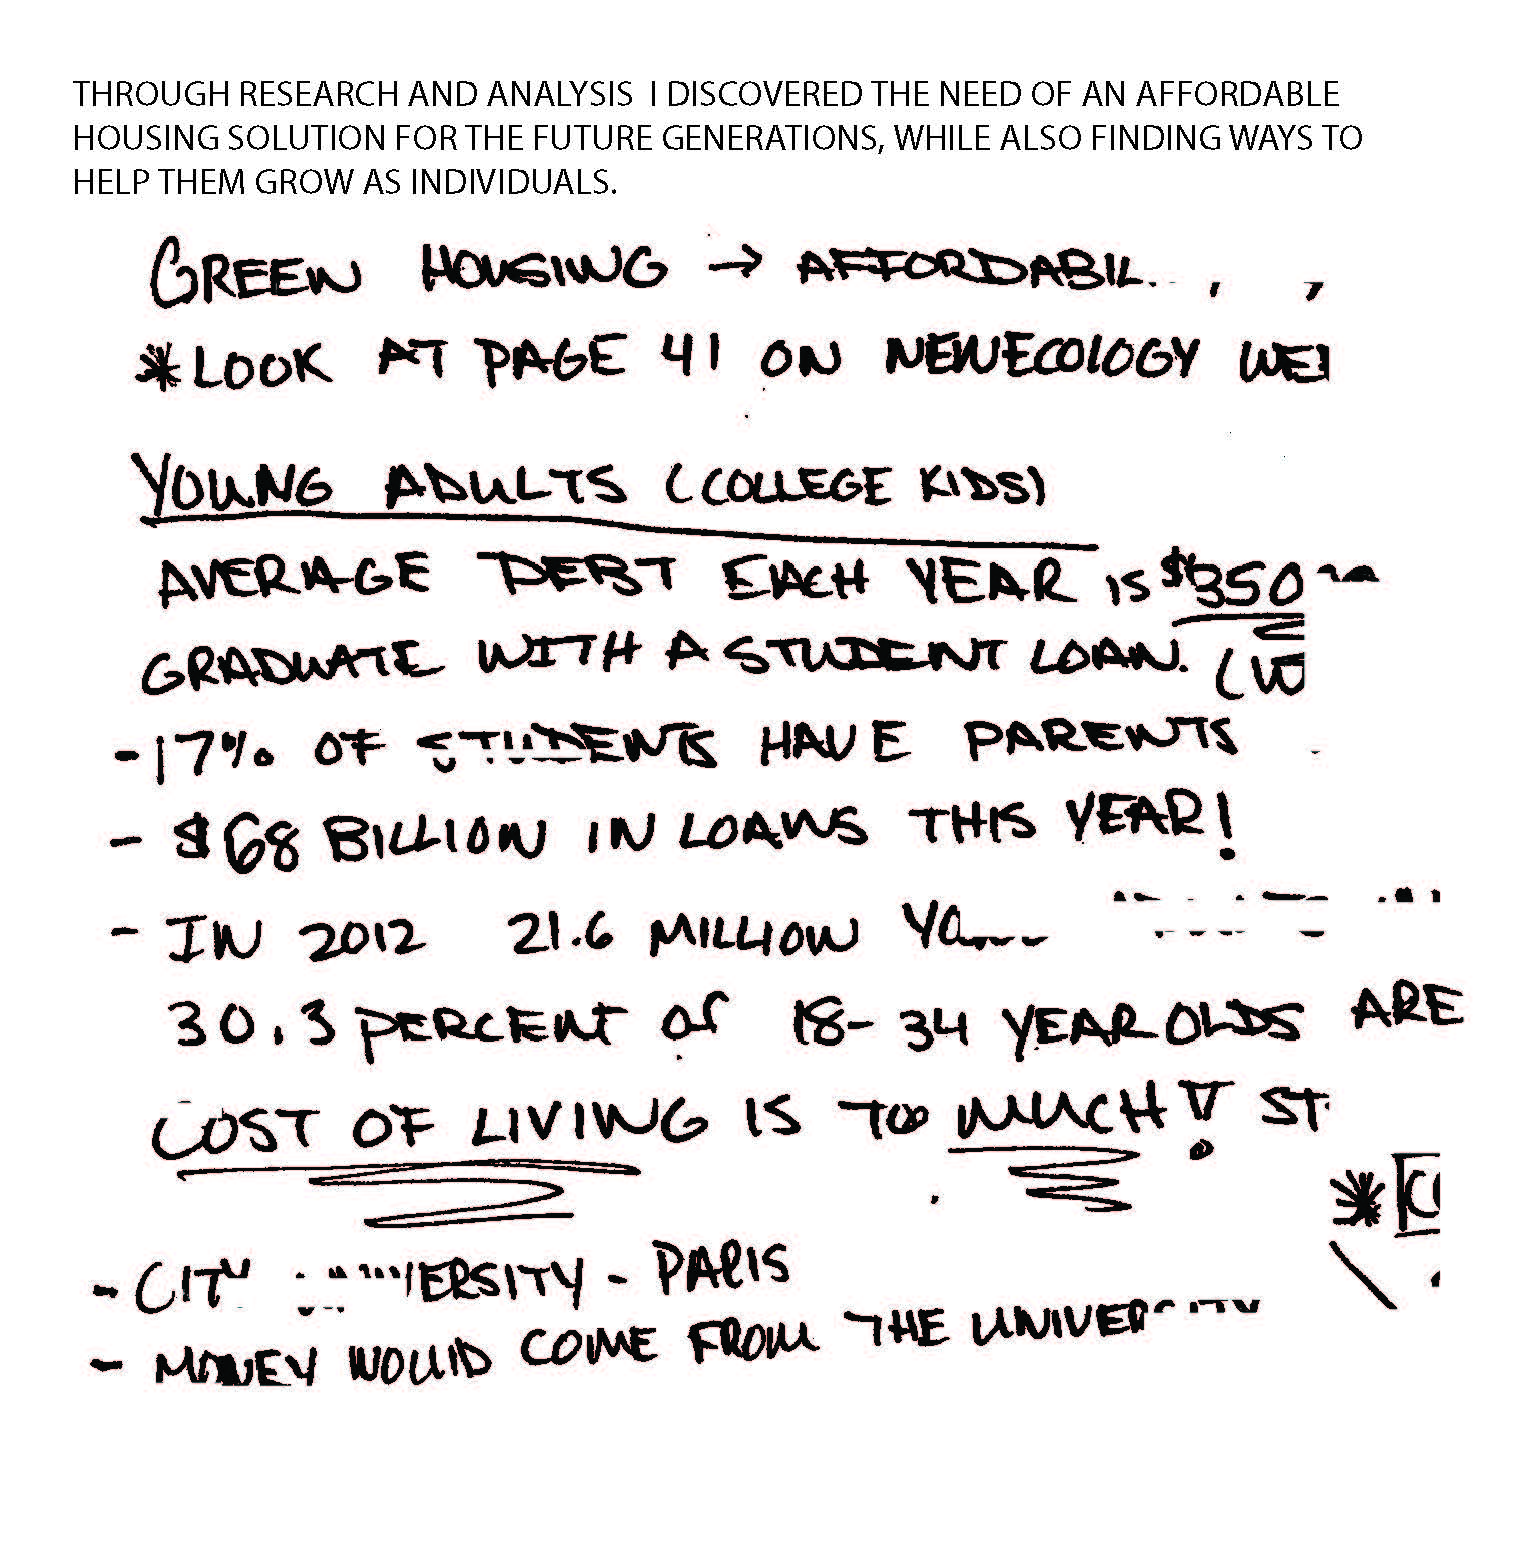 THROUGH RESEARCH AND ANALYSIS I DISCOVERED THE NEED OF AN AFFORDABLE
HOUSING SOLUTION FOR THE FUTURE GENERATIONS, WHILE ALSO FINDING WAYS TO
HELP THEM GROW AS INDIVIDUALS.
GREEN HOUSING → AFFORDABIL
*LOOK AT PAGE 41 ON NEWECOLOGY
YOUNG ADULTS (COLLEGE KIDS)
AVERAGE DEBT EACH YEAR IS
GRADUATE WITH A STUDENT LOAN.
-17% OF STUDENTS HAVE PARENTS
- $68 BILLION IN LOANS THIS YEAR!
- IN 2012 21.6 MILLION
30.3 PERCENT OF 18-34 YEAR OLDS ARE
COST OF LIVING IS TOO MUCH! ST
- CITY UNIVERSITY - PARIS
- MONEY WOULD COME FROM THE UNIVERSITY